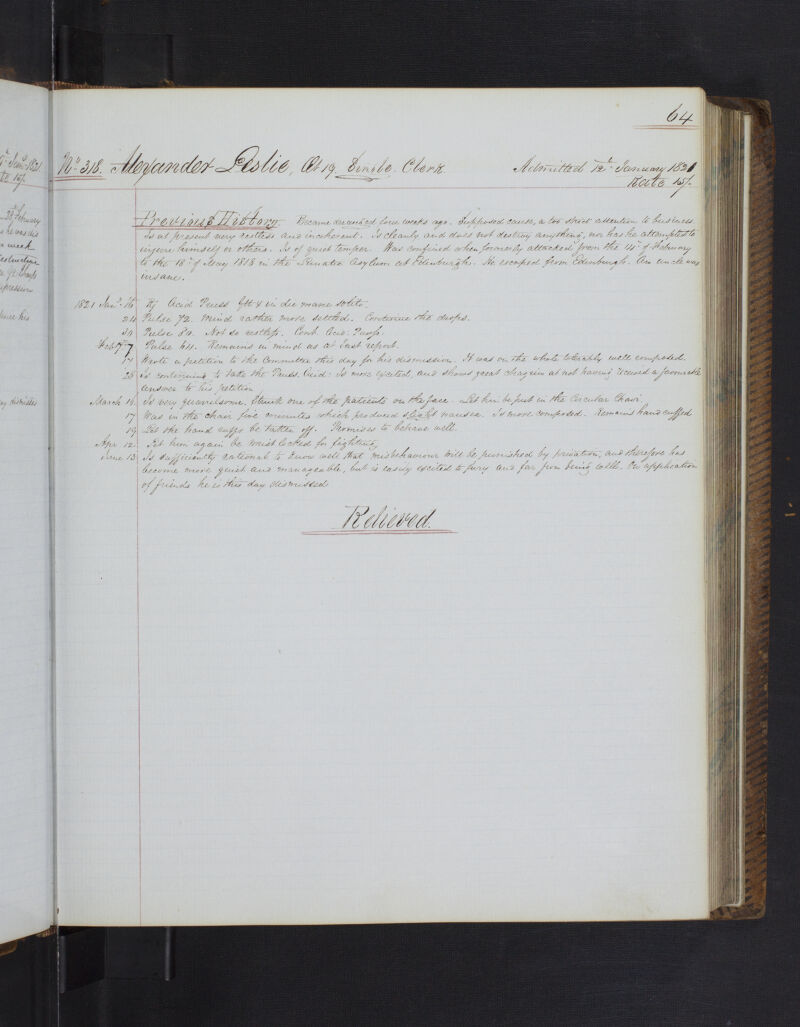 64
No. 318. Alexander Leslie, Æt 19. Single. Clerk. Admitted 12th January 1821
Rate 15/-
Previous History Became deranged four weeks ago. Supposed cause, a too strict attention to business.
Is at present very restless and incoherent. Is cleanly and does not destroy anything, nor has he attempted to
injure himself or others. Is of quiet temper. Was confined when formerly attacked from the 14th of February
to the 18th of May 1818 in the Lunatic Asylum at Edinburgh. He escaped from Edinburgh. An uncle was
insane.
1821 Jany. 16 Acid Pruss Gtt x in die more solito.
24 Pulse 72. Mind rather more settled. Continue the drops.
30 Pulse 80. Not so restless. Cont. Acid: Pruss.
Feby 7 Pulse 64. Remains in mind as at last report.
Wrote a petition to the Committee this day for his dismission. It was on the whole tolerably well composed.
26 Is continuing to take the Pruss. Acid. Is more dejected, and shows great chagrin at not having received a favourable
answer to his petition
March 16 Is very quarrelsome. Struck one of the patients on the face. Let him be put in the Circular Chair.
17 Was in the chair five minutes which produced slight nausea. Is more composed. Remains hand cuffed
19 Let the hand cuffs be taken off. Promises to behave well.
Apr 12. Let him again be wrist locked for fighting.
June 13 Is sufficiently rational to know well that misbehaviour will be punished by privation, and therefore has
become more quiet and manageable, but is easily excited to fury and far from being well. On application
of friends he is this day dismissed
Relieved.
Jany. 1821
15/-
February
he was dis
week
destructive